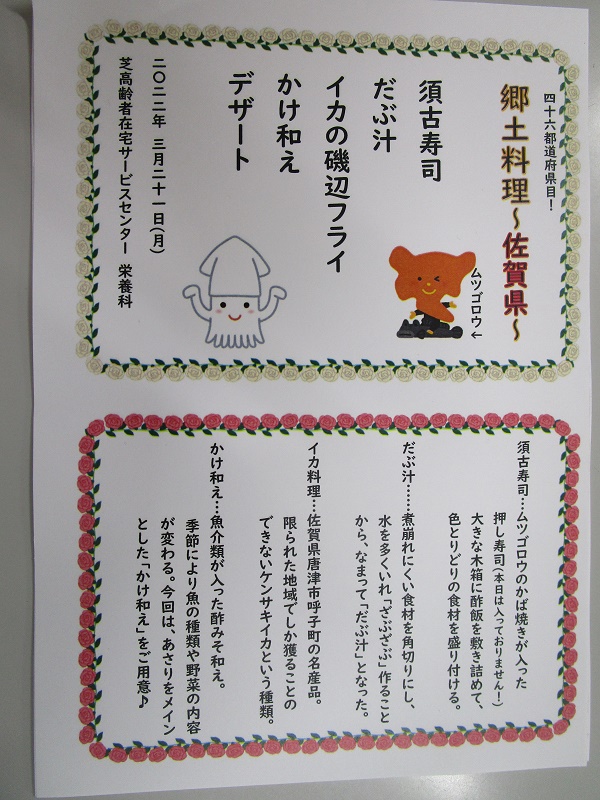 四十六都道府県目！
郷土料理～佐賀県～
ムツゴロウ←
須古寿司
だぶ汁
イカの磯辺フライ
かけ和え
デザート
二〇二二年 三月二十一日（月）
芝高齢者在宅サービスセンター 栄養科
須古寿司…ムツゴロウのかば焼きが入った
押し寿司（本日は入っておりません！）
大きな木箱に酢飯を敷き詰めて、
色とりどりの食材を盛り付ける。
だぶ汁……煮崩れにくい食材を角切りにし、
水を多くいれ「ざぶざぶ」作ること
から、なまって「だぶ汁」となった。
イカ料理…佐賀県唐津市呼子町の名産品。
限られた地域でしか獲ることの
できないケンサキイカという種類。
かけ和え…魚介類が入った酢みそ和え。
季節により魚の種類や野菜の内容
が変わる。今回は、あさりをメイン
とした「かけ和え」をご用意♪